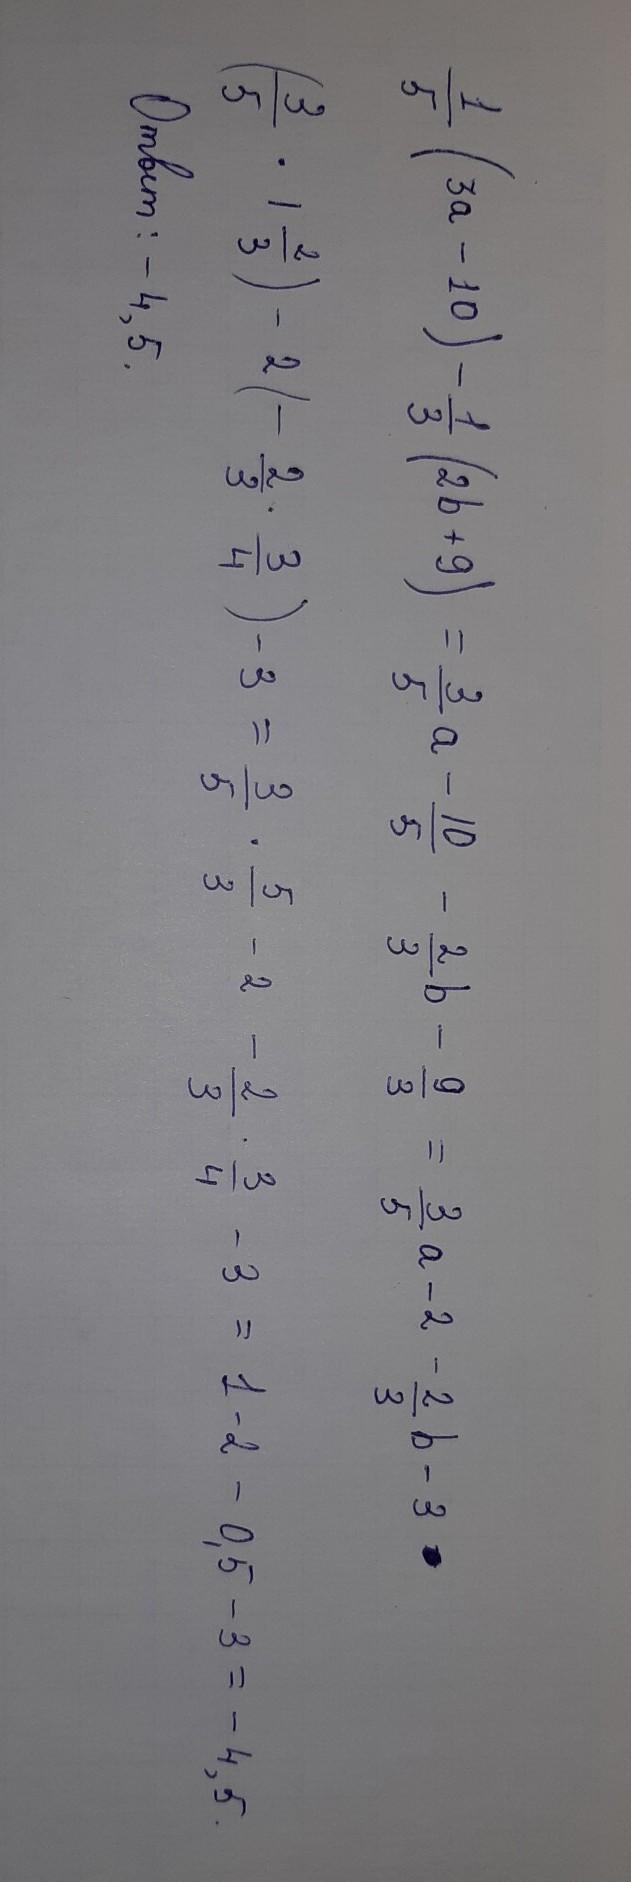 1/5 (3a - 10) - 1/3 (2b + 9) = 3/5 a - 10/5 - 2/3 b - 9/3 = 3/5 a - 2 - 2/3 b - 3
(3/5 · 1 2/3) - 2 (- 2/3 · 3/4) - 3 = 3/5 · 5/3 - 2 - 2/3 · 3/4 - 3 = 1 - 2 - 0,5 - 3 = - 4,5.
Ответ: - 4,5.